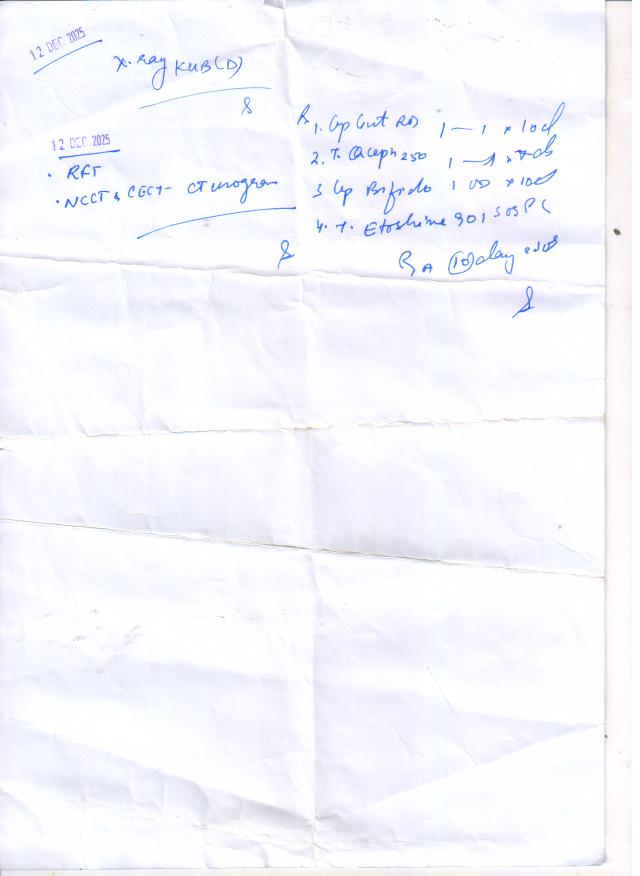 12 DEC 2025
X-ray KUB (D)
12 DEC 2025
• RFT
• NCCT & CECT - CT urogram
1. Cap Gut RD 1—1 x 10d
2. T. Qceph 250 1—1 x 7d
3 Cap Bifido 1 OD x 10d
4. T. Etoshine 90 1 SOS
R A (10) day